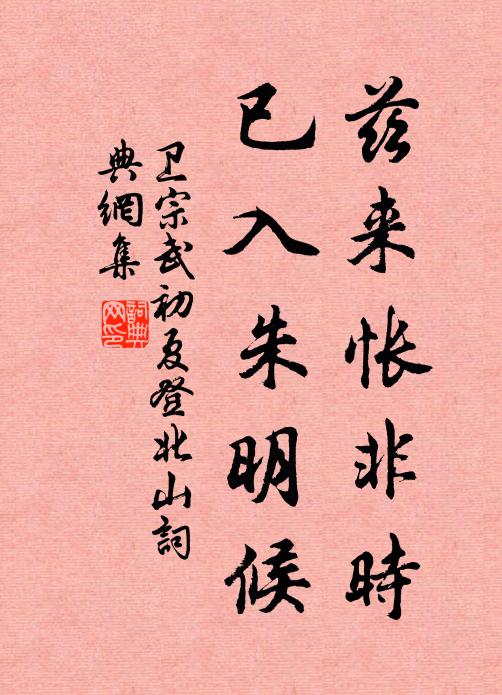 茲来怅非時
已入朱明候
卫宗武初夏登北山詞
典網集
詞典网印